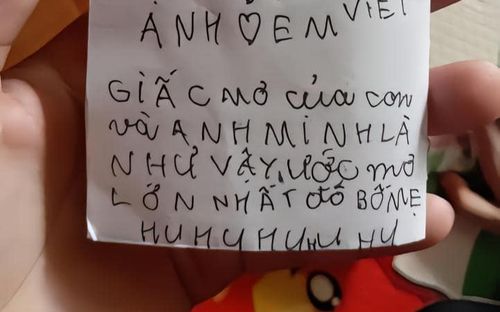 ẢNH ♡ EM VIẾT
GIẤC MƠ của con
và ANH MINH LÀ
NHƯ VẬY, ƯỚC mơ
LỚN NHẤT đó BỐ MẸ
HU HU HU HU HU